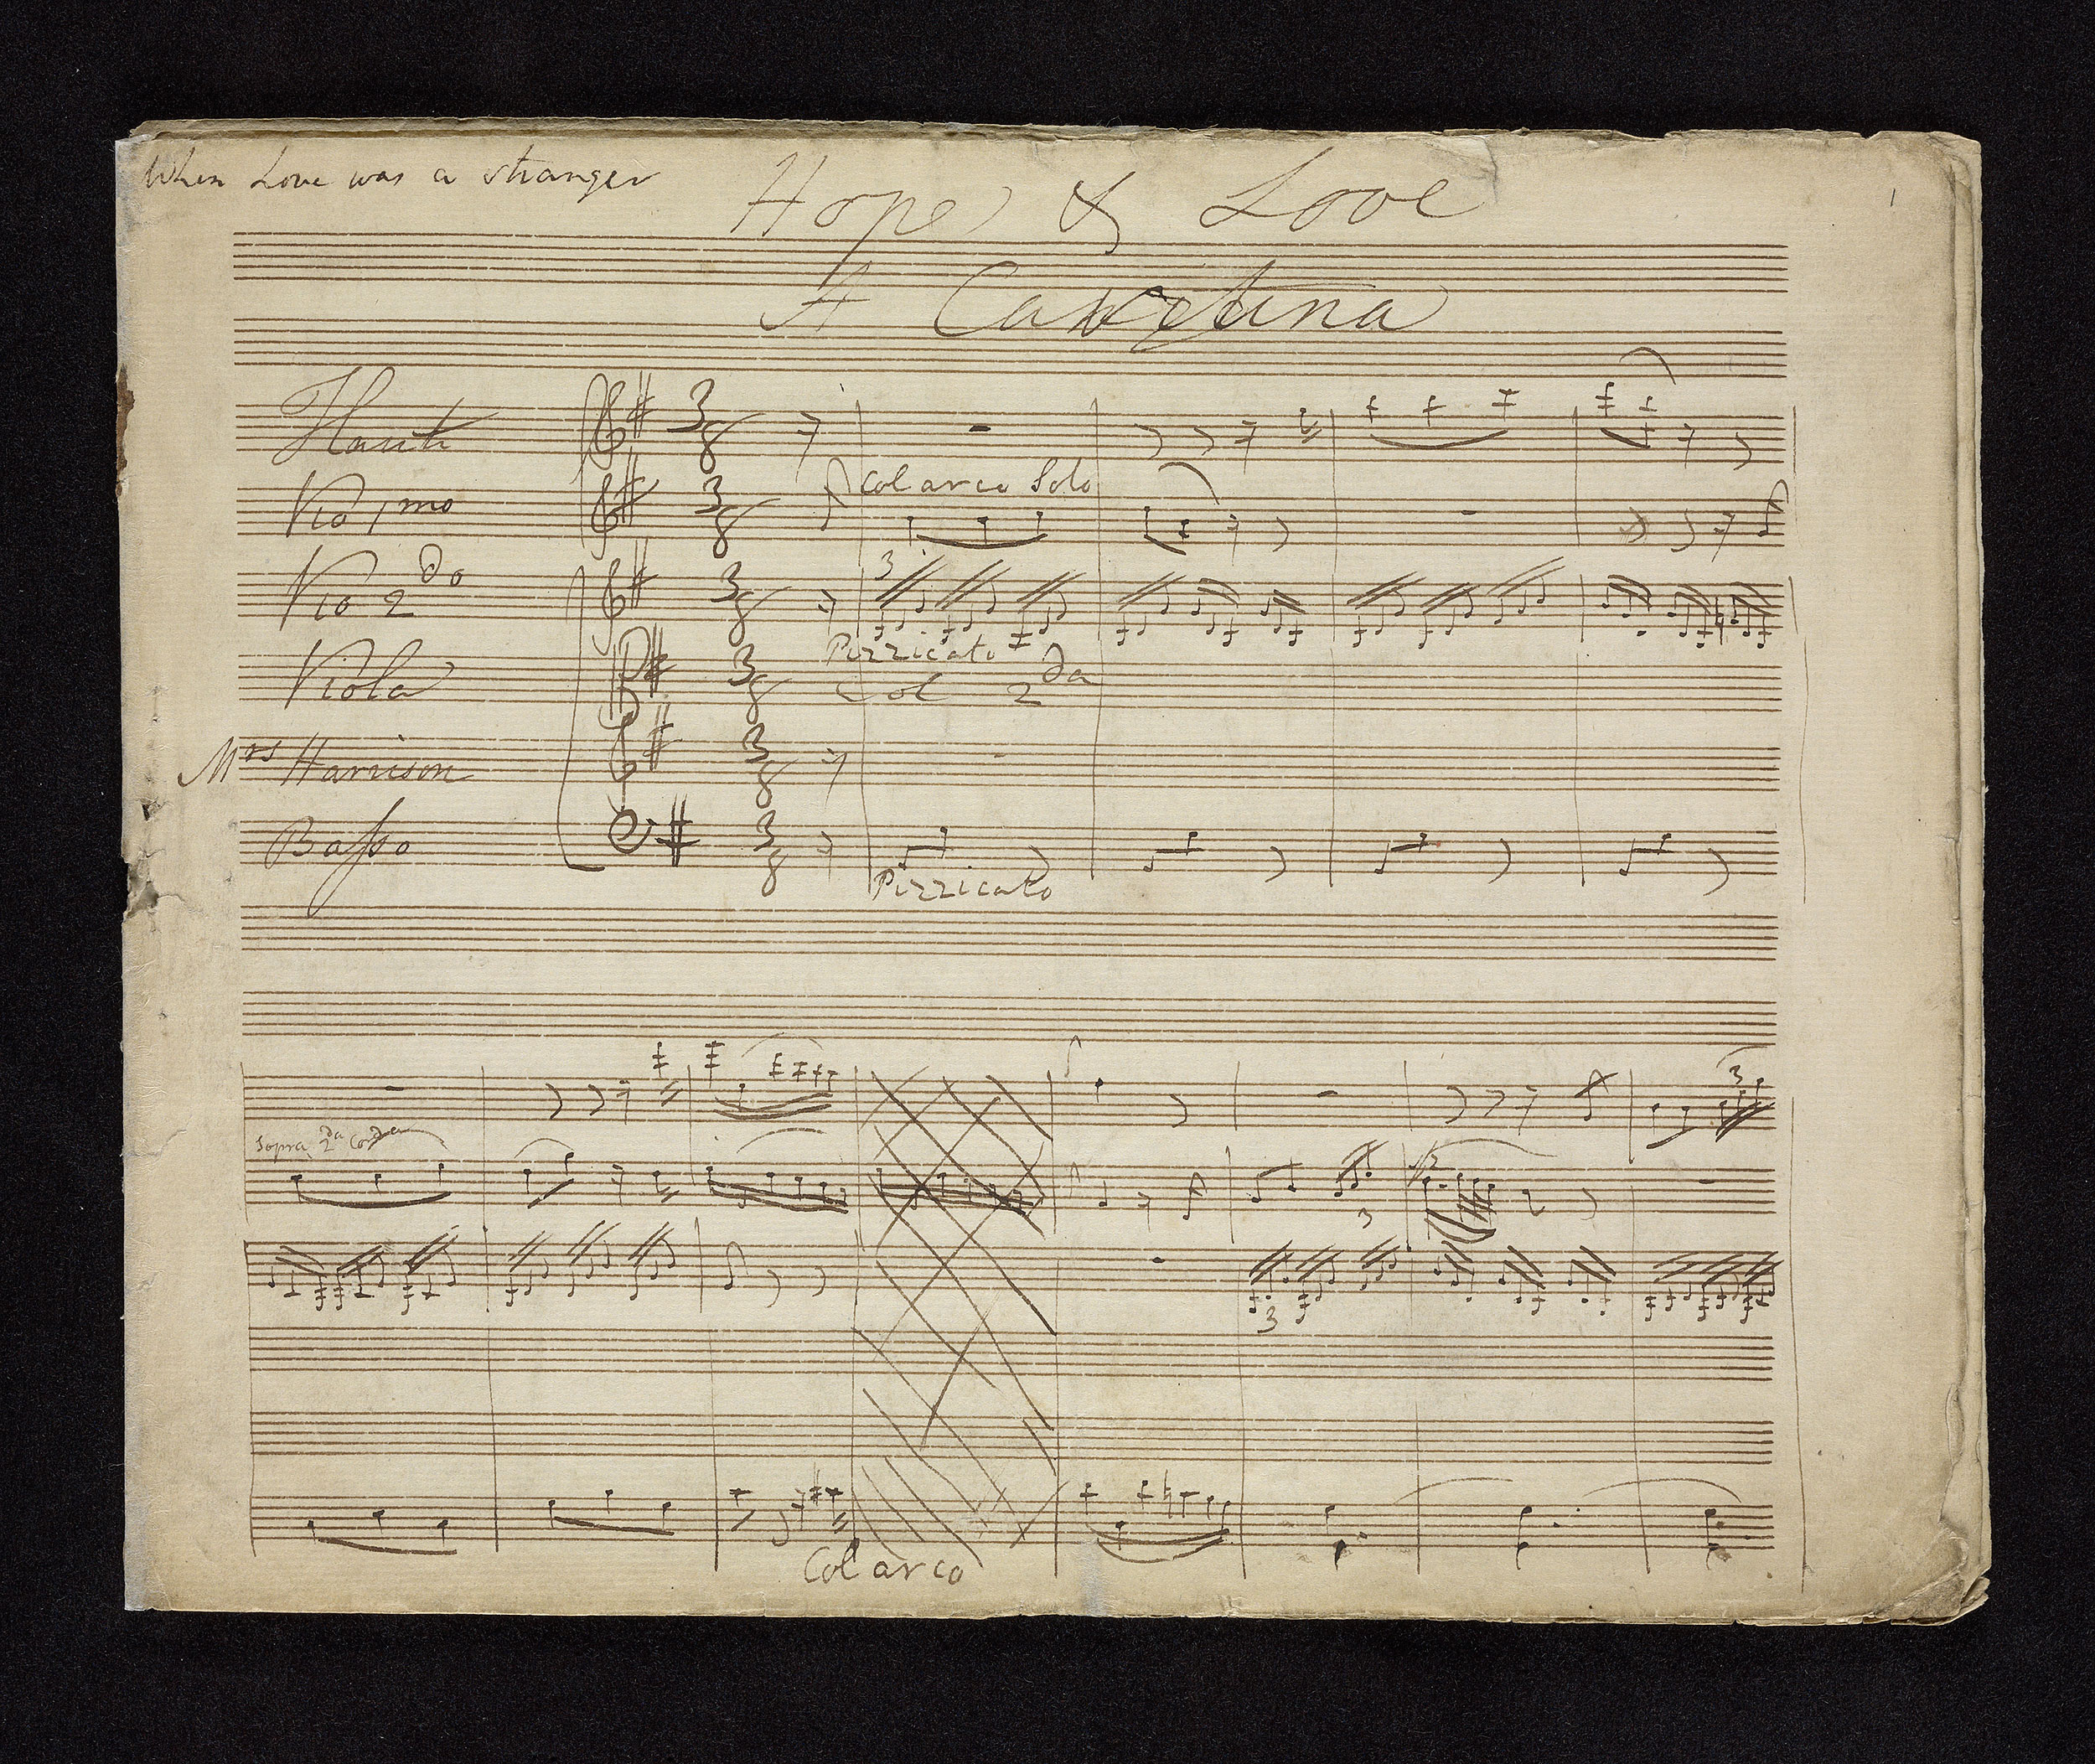 When Love was a stranger
Hope & Love
1
A Cavatina
Flauti
Vio 1mo
Col arco Solo
Vio 2do
3
Pizzicato
Viola
Col 2da
Mrs Harrison
Basso
Pizzicato
3
Sopra 2da Corda
3
3
Col arco